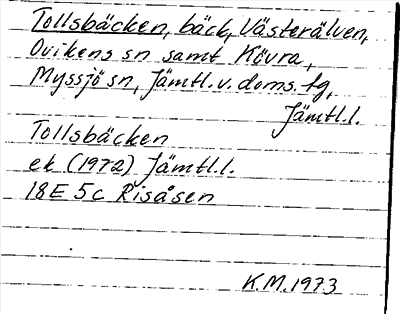 Tollsbäcken, bäck, Västerälven,
Ovikens sn samt Kövra,
Myssjö sn, Jämtl. v. doms. tg,
Jämtl.l.
Tollsbäcken
ek (1972) Jämtl.l.
18E 5c Risåsen
K.M.1973